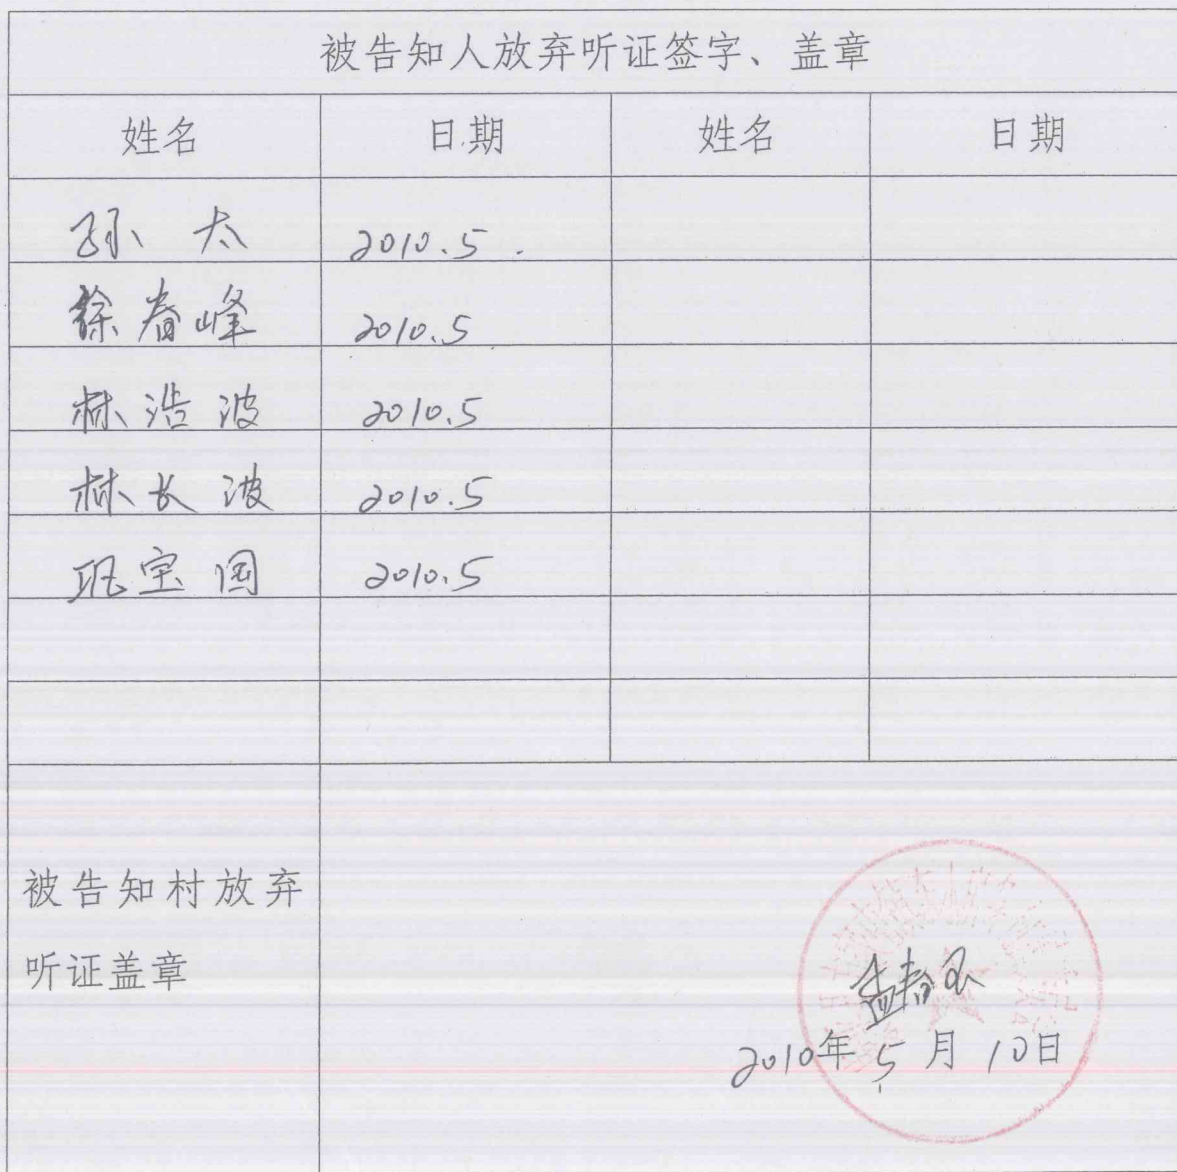 被告知人放弃听证签字、盖章
姓名 日期 姓名 日期
孙 太 2010.5
徐春峰 2010.5
林浩波 2010.5
林长波 2010.5
巩宝国 2010.5
被告知村放弃
听证盖章
2010年5月10日